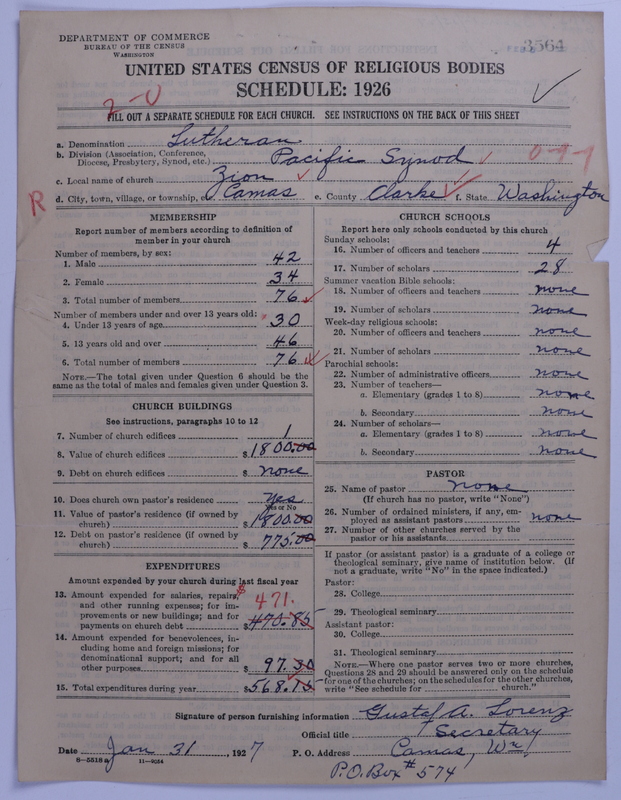 DEPARTMENT OF COMMERCE
BUREAU OF THE CENSUS
WASHINGTON
3564
UNITED STATES CENSUS OF RELIGIOUS BODIES
SCHEDULE: 1926
2-0
FILL OUT A SEPARATE SCHEDULE FOR EACH CHURCH. SEE INSTRUCTIONS ON THE BACK OF THIS SHEET
a. Denomination Lutheran
b. Division (Association, Conference, Diocese, Presbytery, Synod, etc.) Pacific Synod
0-9-9
c. Local name of church Zion
R
d. City, town, village, or township, Camas e. County Clarke f. State Washington
MEMBERSHIP
Report number of members according to definition of
member in your church
Number of members, by sex:
1. Male 42
2. Female 34
3. Total number of members 76
Number of members under and over 13 years old:
4. Under 13 years of age 30
5. 13 years old and over 46
6. Total number of members 76
NOTE.—The total given under Question 6 should be the
same as the total of males and females given under Question 3.
CHURCH BUILDINGS
See instructions, paragraphs 10 to 12
7. Number of church edifices 1
8. Value of church edifices $1800.00
9. Debt on church edifices $ none
10. Does church own pastor's residence Yes
Yes or No
11. Value of pastor's residence (if owned by
church) $1800.00
12. Debt on pastor's residence (if owned by
church) $ 775.00
EXPENDITURES
Amount expended by your church during last fiscal year
13. Amount expended for salaries, repairs, $ 471.
and other running expenses; for im-
provements or new buildings; and for
payments on church debt $470.85
14. Amount expended for benevolences, in-
cluding home and foreign missions; for
denominational support; and for all
other purposes $ 97.30
15. Total expenditures during year $568.15
CHURCH SCHOOLS
Report here only schools conducted by this church
Sunday schools:
16. Number of officers and teachers 4
17. Number of scholars 28
Summer vacation Bible schools:
18. Number of officers and teachers none
19. Number of scholars none
Week-day religious schools:
20. Number of officers and teachers none
21. Number of scholars none
Parochial schools:
22. Number of administrative officers none
23. Number of teachers—
a. Elementary (grades 1 to 8) none
b. Secondary none
24. Number of scholars—
a. Elementary (grades 1 to 8) none
b. Secondary none
PASTOR
25. Name of pastor None
(If church has no pastor, write "None")
26. Number of ordained ministers, if any, em-
ployed as assistant pastors none
27. Number of other churches served by the
pastor or his assistants
If pastor (or assistant pastor) is a graduate of a college or
theological seminary, give name of institution below. (If
not a graduate, write "No" in the space indicated.)
Pastor:
28. College
29. Theological seminary
Assistant pastor:
30. College
31. Theological seminary
NOTE.—Where one pastor serves two or more churches,
Questions 28 and 29 should be answered only on the schedule
for one of the churches; on the schedules for the other churches,
write "See schedule for church."
Signature of person furnishing information Gustaf A. Lorenz
Official title Secretary
Date Jan 31 1927 P. O. Address Camas, Wn,
8-5518a 11-9054
P.O. Box # 574